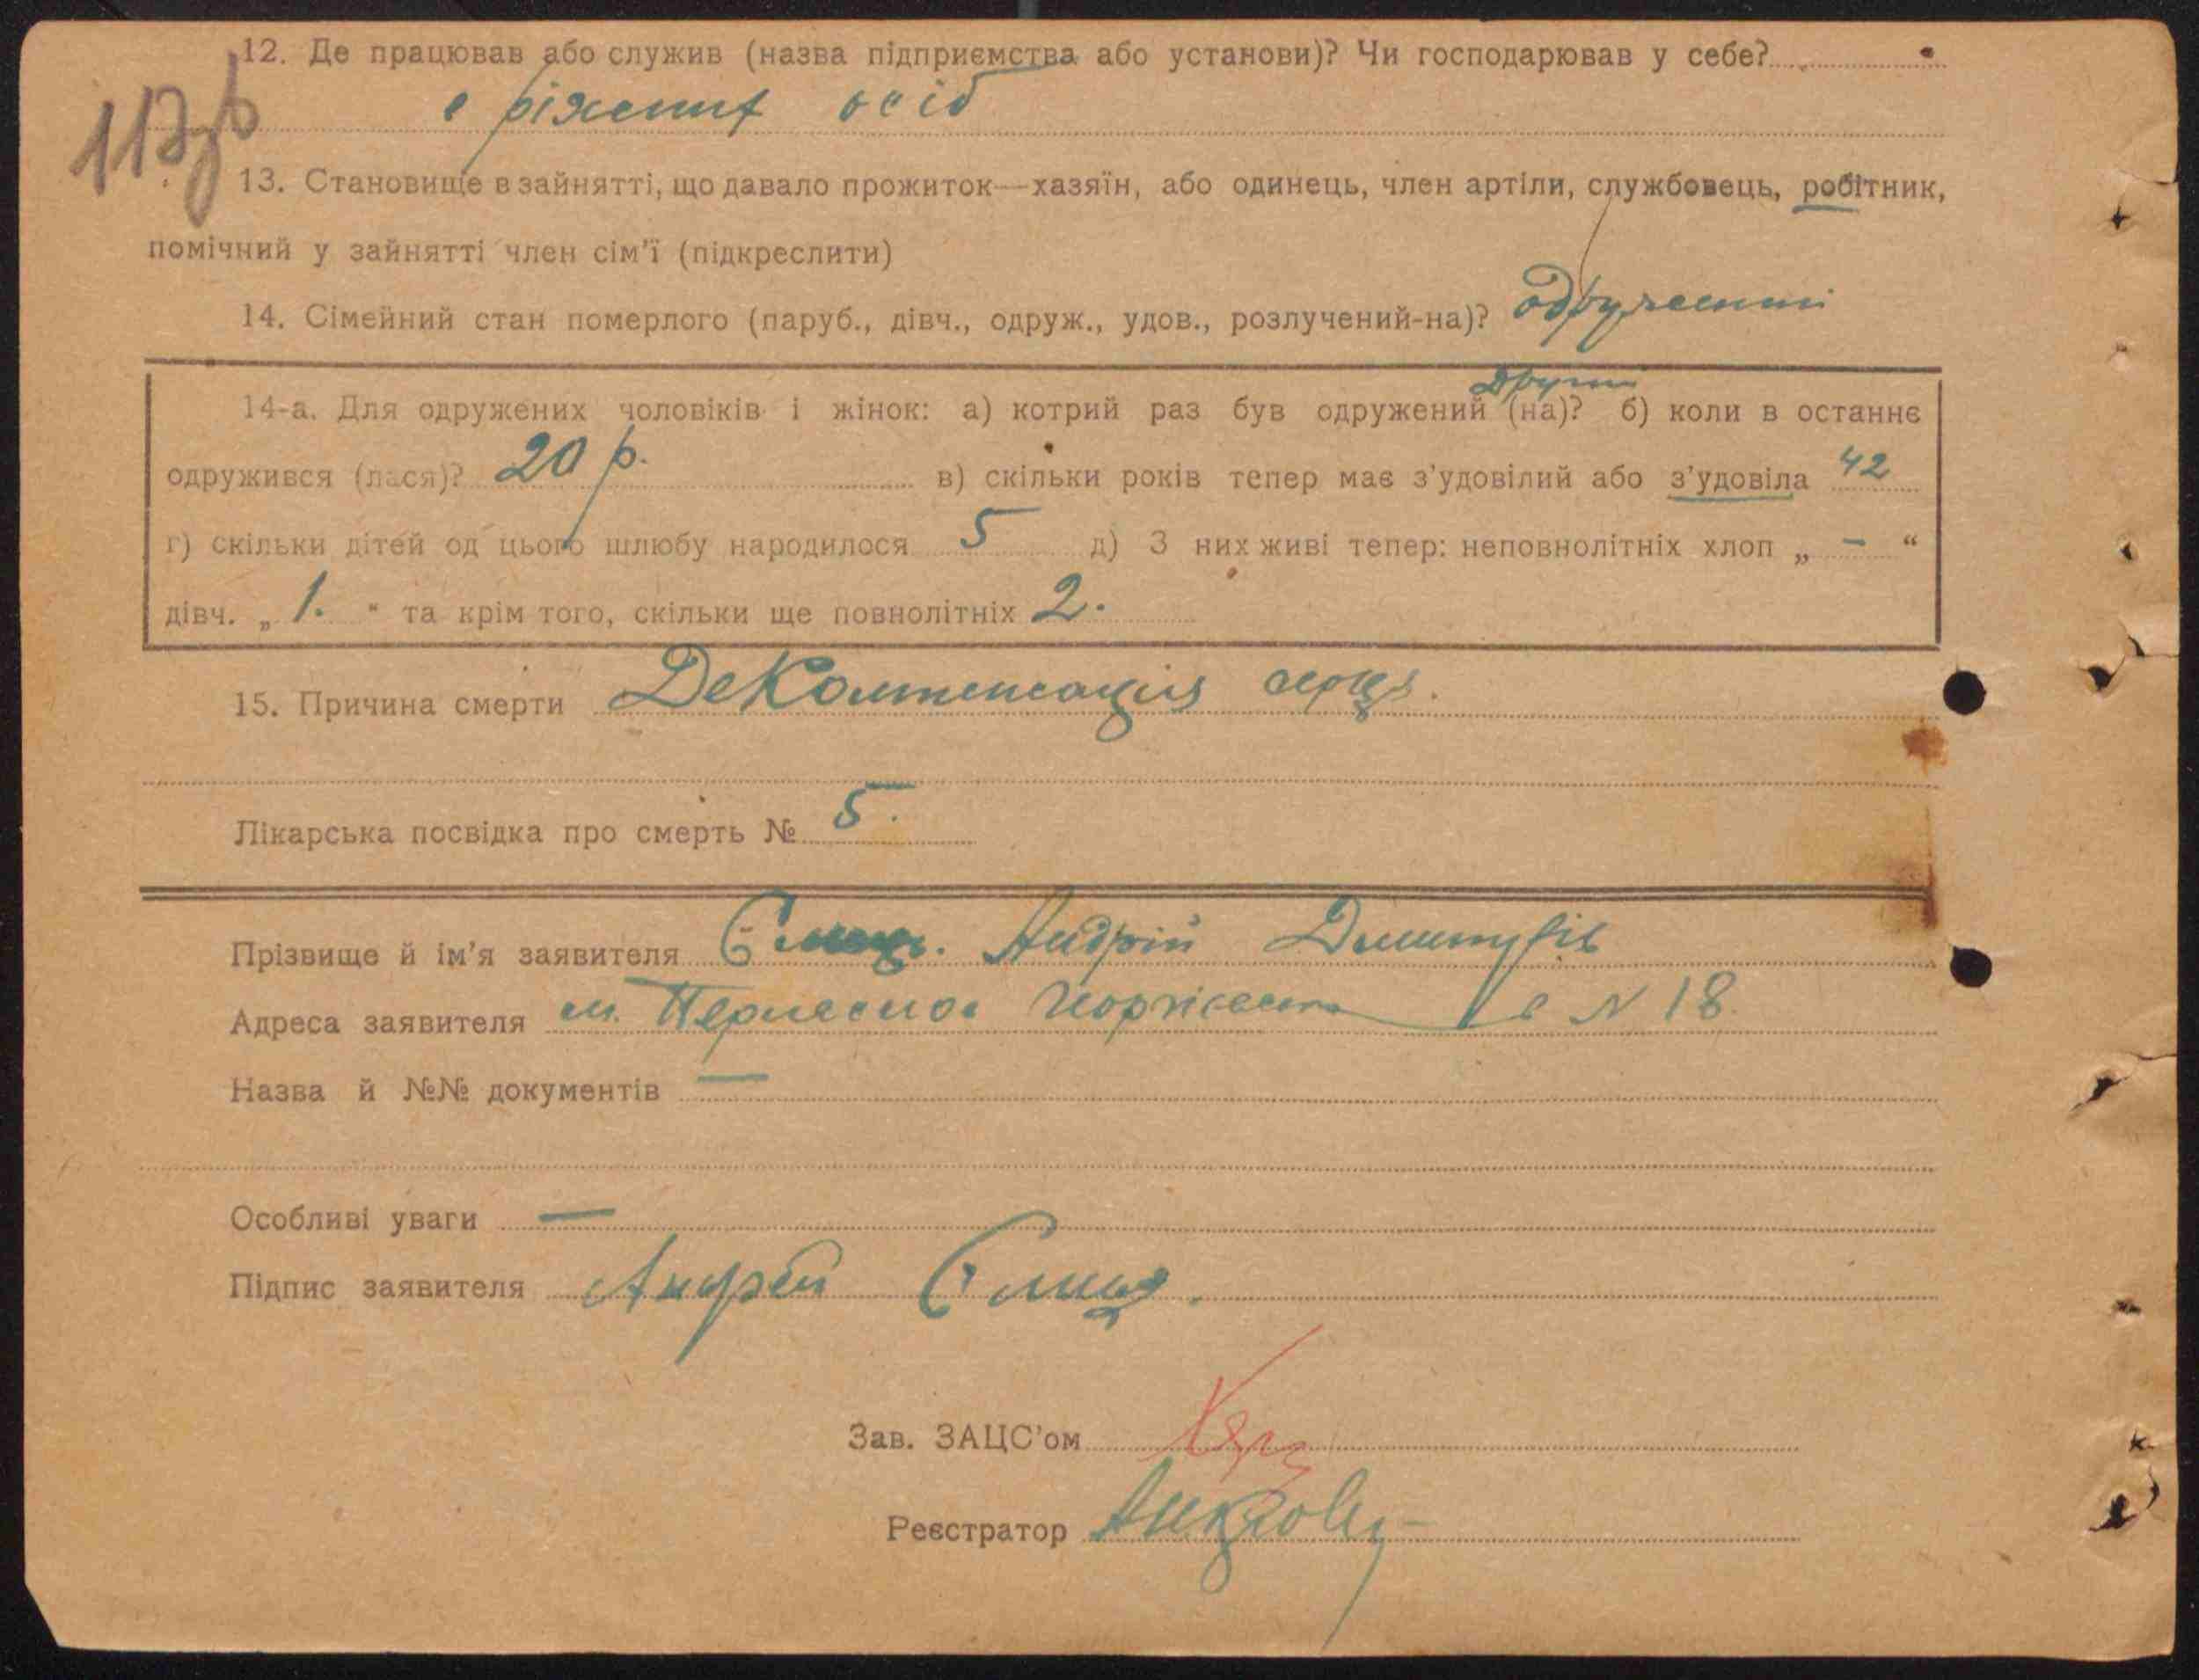 12. Де працював або служив (назва підприємства або установи)? Чи господарював у себе?
в ріжних осіб
117зв
13. Становище в зайнятті, що давало прожиток—хазяїн, або одинець, член артіли, службовець, робітник,
помічний у зайнятті член сім'ї (підкреслити)
14. Сімейний стан померлого (паруб., дівч., одруж., удов., розлучений-на)? одружений
другий
14-а. Для одружених чоловіків і жінок: а) котрий раз був одружений (на)? б) коли в останнє
одружився (лася)? 20 р. в) скільки років тепер має з'удовілий або з'удовіла 42
г) скільки дітей од цього шлюбу народилося 5 д) З них живі тепер: неповнолітніх хлоп „ – “
дівч. „ 1. “ та крім того, скільки ще повнолітніх 2.
15. Причина смерти Декомпенсація серця.
Лікарська посвідка про смерть № 5.
Прізвище й ім'я заявителя Андрій
Адреса заявителя м. в N 18.
Назва й №№ документів —
Особливі уваги —
Підпис заявителя Андрей
Зав. ЗАЦС'ом
Реєстратор